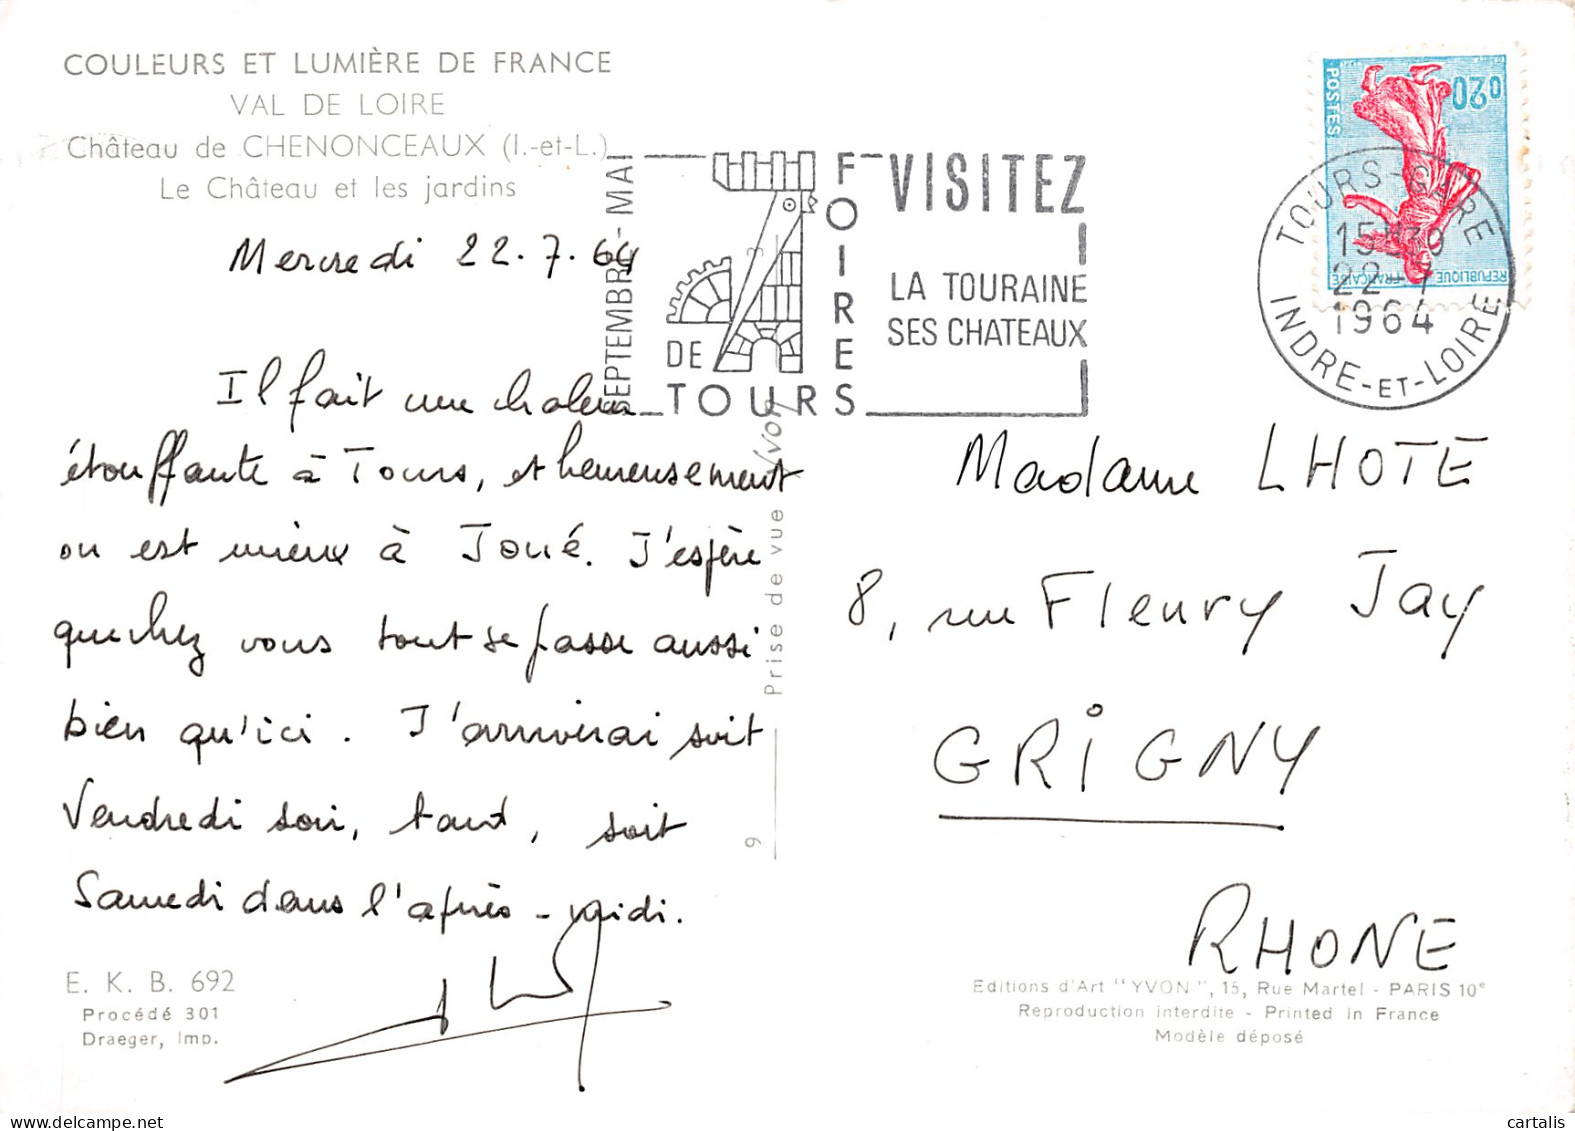 COULEURS ET LUMIÈRE DE FRANCE
VAL DE LOIRE
Château de CHENONCEAUX (I.-et-L.)
Le Château et les jardins
Mercredi 22.7.64
Il fait une chaleur
étouffante à Tours, et heureusement
on est mieux à Joué. J'espère
que chez vous tout se passe aussi
bien qu'ici. J'arriverai soit
Vendredi soir, tard, soit
Samedi dans l'après-midi.
E. K. B. 692
Procédé 301
Draeger, Imp.
Prise de vue Yvon
9
SEPTEMBRE-MAI
FOIRES
DE
TOURS
VISITEZ
LA TOURAINE
SES CHATEAUX
0,20
POSTES
REPUBLIQUE FRANÇAISE
TOURS-GARE
15H30
22-7
1964
INDRE-ET-LOIRE
Madame LHOTE
8, rue Fleury Jay
GRIGNY
RHONE
Editions d'Art "YVON", 15, Rue Martel - PARIS 10e
Reproduction interdite - Printed in France
Modèle déposé
cartalis
www.delcampe.net